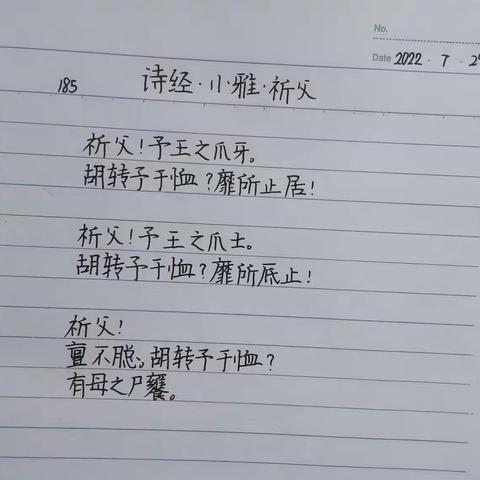 No.
Date 2022 · 7 · 2
185 诗经·小雅·祈父
祈父!予王之爪牙。
胡转予于恤?靡所止居!
祈父!予王之爪士。
胡转予于恤?靡所底止!
祈父!
亶不聪,胡转予于恤?
有母之尸饔。